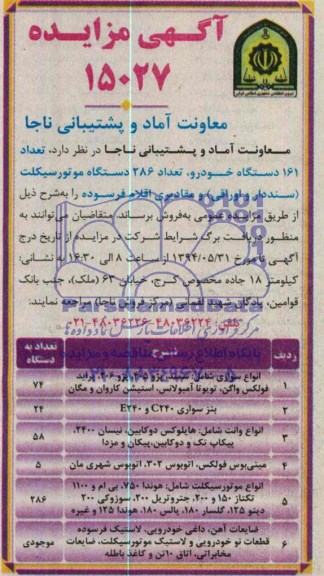 آگهی مزایده
۱۵۰۲۷
معاونت آماد و پشتیبانی ناجا
معاونت آماد و پشتیبانی ناجا در نظر دارد، تعداد
۱۶۱ دستگاه خودرو، تعداد ۲۸۶ دستگاه موتورسیکلت
(سنددار و اوراقی) و مقادیری اقلام فرسوده را به‌شرح ذیل
از طریق مزایده عمومی به‌فروش برساند. متقاضیان می‌توانند به
منظور دریافت برگ شرایط شرکت در مزایده از تاریخ درج
آگهی تا مورخ ۱۳۹۴/۰۵/۳۱ از ساعت ۸ الی ۱۶:۳۰ به نشانی:
کیلومتر ۱۸ جاده مخصوص کرج، خیابان ۶۳ (ملک)، جنب بانک
قوامین، پادگان شهید لقمانی (مرکز فروش ناجا) مراجعه نمایند.
تلفن: ۴۸۰۳۶۲۲۴-۴۸۰۳۶۲۲۶-۰۲۱
ردیف شرح تعداد به دستگاه
۱ انواع سواری شامل: پژو ۴۰۵، پراید
فولکس واگن، تویوتا آمبولانس، استیشن کاروان و مگان ۷۴
۲ بنز سواری C۲۴۰ و E۲۴۰ ۲۴
۳ انواع وانت شامل: هایلوکس دوکابین، نیسان ۲۴۰۰،
پیکاپ تک و دوکابین، پیکان و مزدا ۵۸
۴ مینی‌بوس فولکس، اتوبوس ۳۰۲، اتوبوس شهری مان ۵
۵ انواع موتورسیکلت شامل: هوندا ۷۵۰، بی ام و ۱۱۰۰
تکتاز ۱۵۰ و ۲۰۰، جتروتریل ۲۰۰، سوزوکی ۲۰۰
دینو ۱۲۵، گلسار ۱۸۰، پالس ۱۸۰، هوندا ۱۲۵ و غیره ۲۸۶
۶ ضایعات آهن، داغی خودرویی، لاستیک فرسوده
قطعات نو خودرویی و لاستیک موتورسیکلت، ضایعات
مخابراتی، اتاق ۱۰تن و کاغذ باطله موجودی